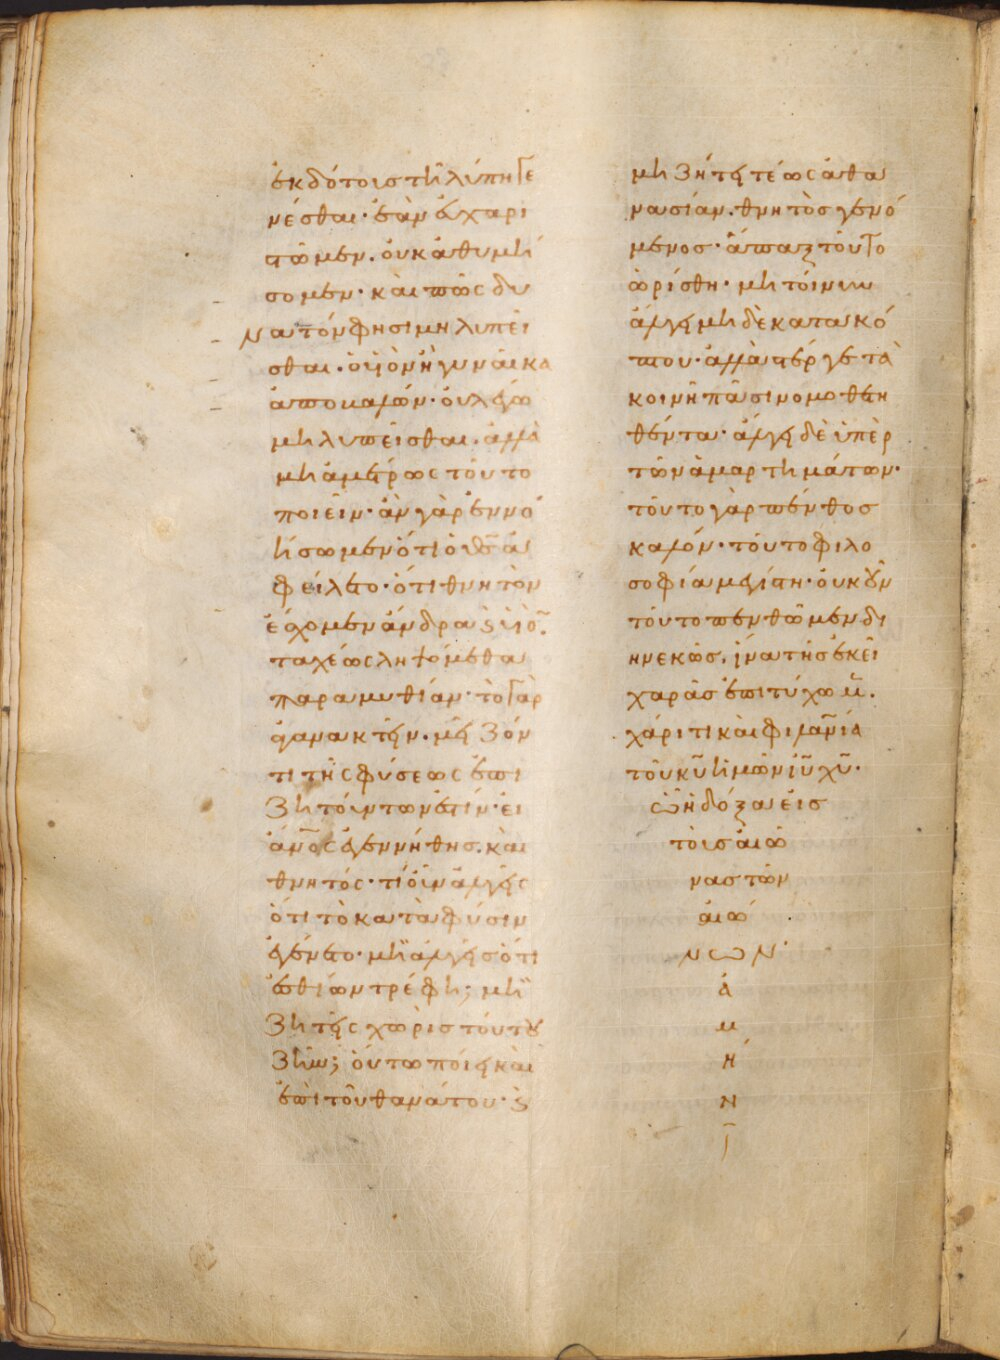 ἐκδότοις τῆ λύπη γε
νέσθαι· ἐὰν εὐχαρι
στῶμεν. οὐκ ἀθυμή
σομεν· καὶ πῶς δυ
νατόν φησι μὴ λυπεῖ
σθαι. υἱὸν ἢ γυναῖκα
ἀποβαλών· οὐ λέγω
μὴ λυπεῖσθαι. ἀλλὰ
μὴ ἀμέτρως τοῦτο
ποιεῖν· ἂν γὰρ ἐννο
ήσωμεν ὅτι ὁ θς ἀ
φείλετο· ὅτι θνητὸν
ἔχομεν ἄνδρα ϗ υἱὸ̅.
ταχέως ληψόμεθα
παραμυθίαν· τὸ γὰρ
ἀγανακτεῖν. μεῖζόν
τι τῆς φύσεως ἐπι
ζητούντων ἐστίν· εἰ
ἄνο̅ς ἐγεννήθης. καὶ
θνητός· τί οὖν ἀλγεῖς
ὅτι τὸ κατὰ φύσιν
ἐγένετο· μὴ ἀλγεῖς ὅτι
ἐσθίων τρέφη; μὴ
ζητεῖς χωρὶς τούτου
ζῆν; οὕτω ποίει καὶ
ἐπὶ τοῦ θανάτου· ϗ
μὴ ζήτει τέως ἀθα
νασίαν. θνητὸς γενό
μενος· ἅπαξ τοῦτο
ὡρίσθη· μὴ τοίνυν
ἄλγει μὴ δὲ κατακό
πτου· ἀλλὰ στέργε τὰ
κοινῆ πᾶσι νομοθετη
θέντα· ἄλγει δὲ ὑπὲρ
τῶν ἁμαρτημάτων·
τοῦτο γὰρ πένθος
καλόν· τοῦτο φιλο
σοφία μεγίστη· οὐκοῦν
τοῦτο πενθῶμεν δι
ηνεκῶς. ἵνα τῆς ἐκεῖ
χαρᾶς ἐπιτύχωμ̅.
χάριτι καὶ φιλανί̅α
τοῦ κυ̅ ἡμῶν ιυ̅ χυ̅·
ᾧ ἡ δόξα εἰς
τοὺς αἰῶ
νας τῶν
αἰώ
νων·
ἀ
μ
ή
ν